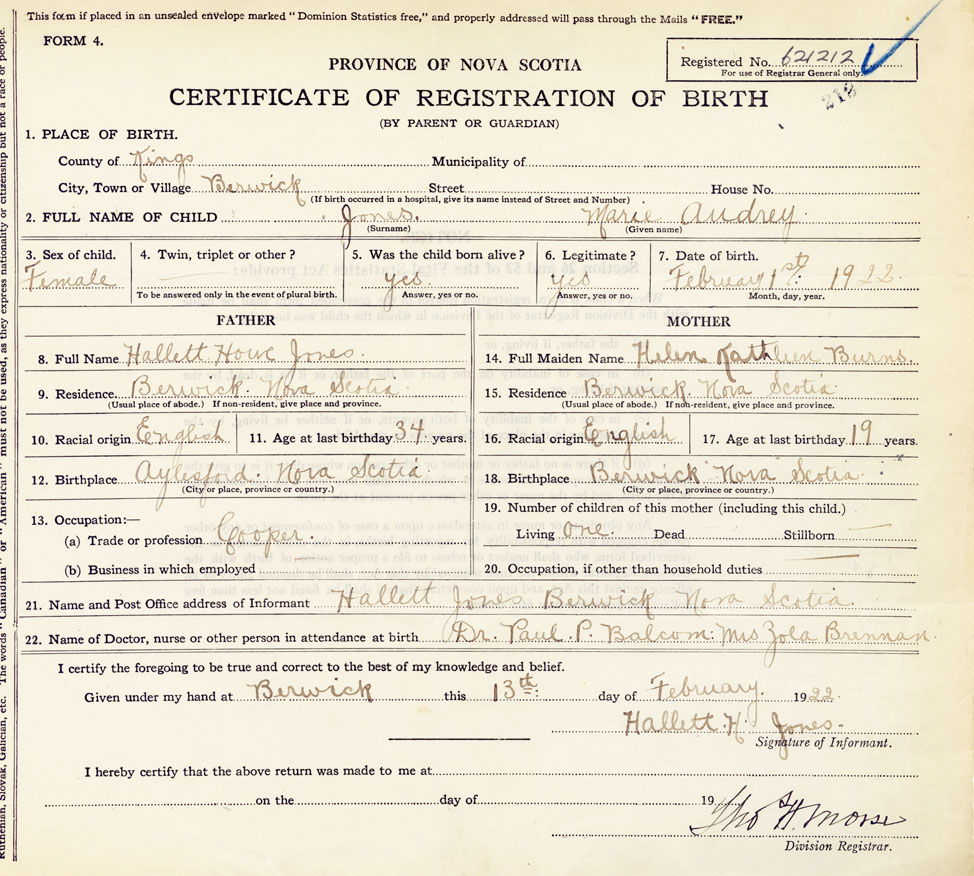 This form if placed in an unsealed envelope marked "Dominion Statistics free," and properly addressed will pass through the Mails "FREE."
FORM 4.
Registered No. 621212
For use of Registrar General only.
212
PROVINCE OF NOVA SCOTIA
CERTIFICATE OF REGISTRATION OF BIRTH
(BY PARENT OR GUARDIAN)
1. PLACE OF BIRTH.
County of Kings Municipality of
City, Town or Village Berwick Street House No.
(If birth occurred in a hospital, give its name instead of Street and Number)
2. FULL NAME OF CHILD Jones. Marie Audrey.
(Surname) (Given name)
3. Sex of child. 4. Twin, triplet or other? 5. Was the child born alive? 6. Legitimate? 7. Date of birth.
Female yes. yes February 1st. 1922
To be answered only in the event of plural birth. Answer, yes or no. Answer, yes or no. Month, day, year.
FATHER MOTHER
8. Full Name Hallett Howe Jones. 14. Full Maiden Name Helen Kathleen Burns.
9. Residence Berwick. Nova Scotia 15. Residence Berwick. Nova Scotia
(Usual place of abode.) If non-resident, give place and province. (Usual place of abode.) If non-resident, give place and province.
10. Racial origin English 11. Age at last birthday 34 years. 16. Racial origin English 17. Age at last birthday 19 years.
12. Birthplace Aylesford. Nova Scotia 18. Birthplace Berwick Nova Scotia
(City or place, province or country.) (City or place, province or country.)
13. Occupation:— 19. Number of children of this mother (including this child.)
(a) Trade or profession Cooper. Living one. Dead Stillborn —
(b) Business in which employed 20. Occupation, if other than household duties
21. Name and Post Office address of Informant Hallett Jones Berwick Nova Scotia.
22. Name of Doctor, nurse or other person in attendance at birth Dr. Paul. P. Balcom: Mrs Zola Brennan.
I certify the foregoing to be true and correct to the best of my knowledge and belief.
Given under my hand at Berwick this 13th: day of February. 1922.
Hallett. H. Jones.
Signature of Informant.
I hereby certify that the above return was made to me at
on the day of 19
Tho H. Morse
Division Registrar.
Ruthenian, Slovak, Galician, etc. The words "Canadian" or "American" must not be used, as they express nationality or citizenship but not a race or people.